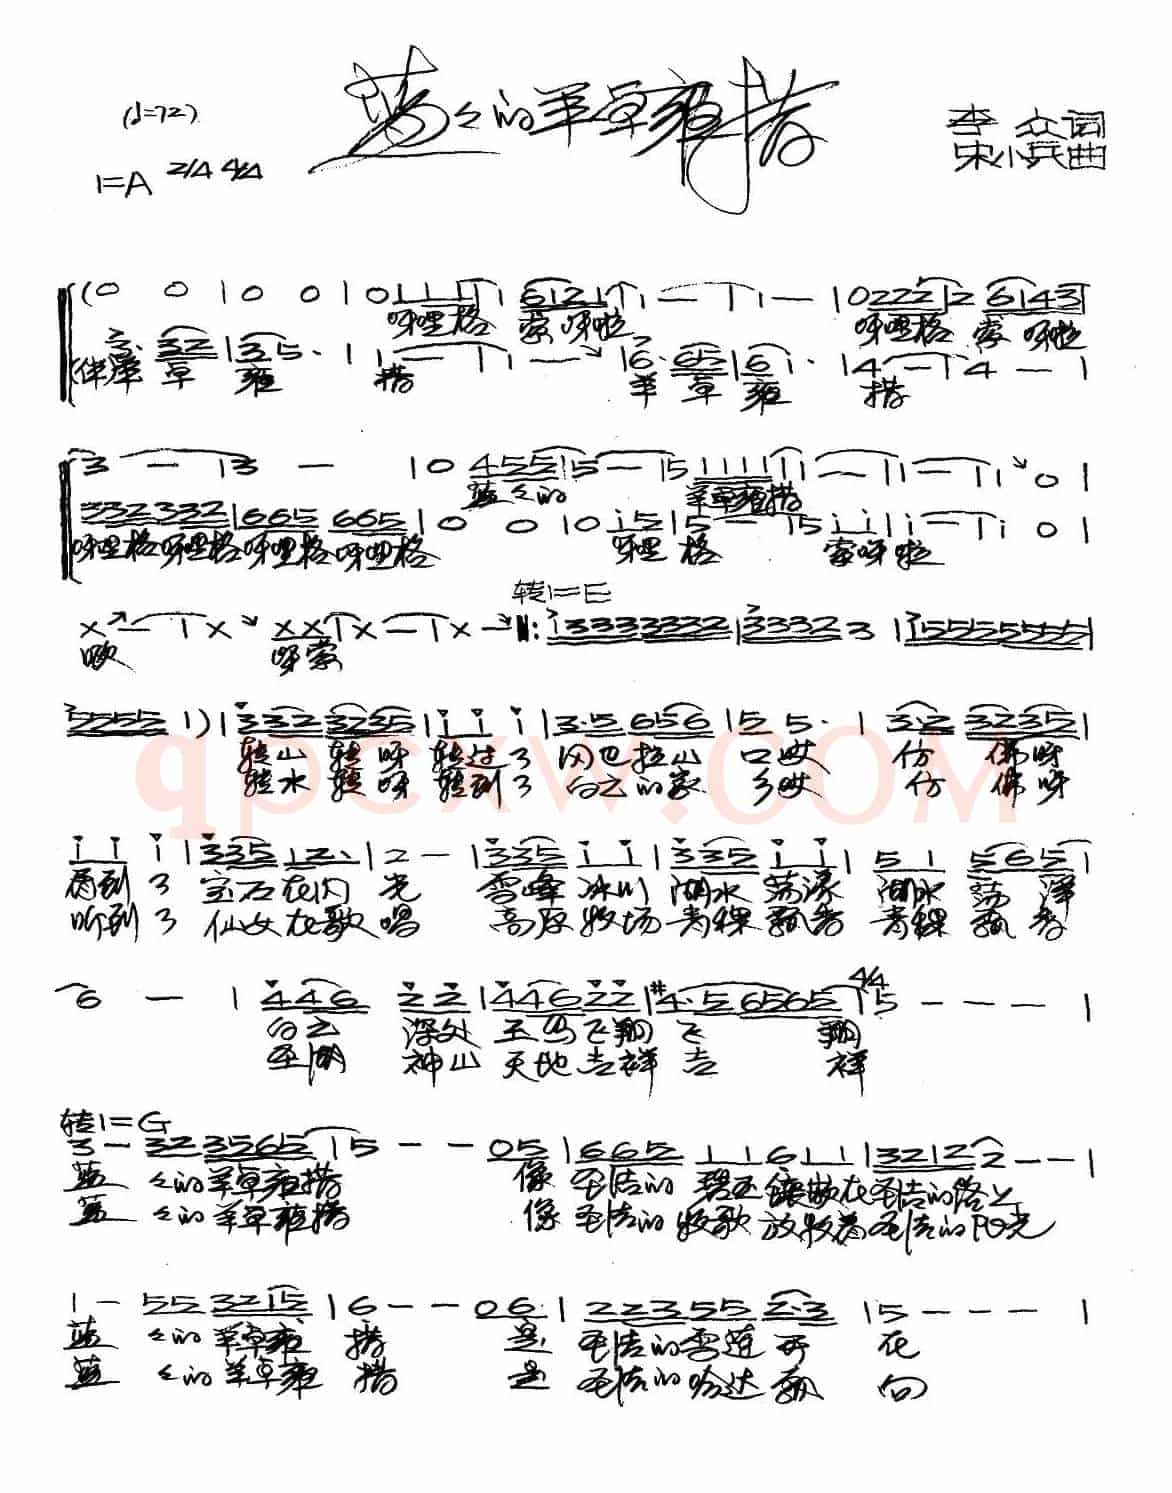 (♩=72)
蓝々的羊卓雍措
李众词
1=A 2/4 4/4
宋小兵曲
(0 0 | 0 0 | 0 1 1 1 1 | 6 1 2 1 | 1 — | 1 — | 0 2 2 2 2 | 2 6 1 4 3 |
呀哩格 索呀啦 呀哩格 索呀啦
3· 3 2 | 3 5 · | 1 — | 1 — | 6· 6 5 | 6 1 · | 4 — | 4 — |
(伴)羊卓雍措 羊卓雍措
3 — | 3 — | 0 4 5 5 | 5 — | 5 1 1 1 1 | 1 — | 1 — | 1 0 |
蓝々的 羊卓雍措
3 3 2 3 3 2 | 6 6 5 6 6 5 | 0 0 | 0 1 5 | 5 — | 5 1 1 | 1 — | 1 0 |
呀哩格呀哩格呀哩格呀哩格 呀哩格 索呀啦
转1=E
X — | X X X | X — | X — ‖: 1 3 3 3 3 2 3 2 | 3 3 3 2 3 | 1 5 5 5 5 5 5 5 |
呀索
5 5 5 5 1) | 3 3 2 3 2 3 5 | 1 1 1 | 3· 5 6 5 6 | 5 5 · | 3· 2 3 2 3 5 |
转山转呀转过了 闪巴拉山口哎 仿佛呀
转水转呀转到了 白云的家乡哎 仿佛呀
1 1 1 | 3 3 5 1 2 · | 2 — | 3 3 5 1 1 | 3 3 5 1 1 | 5 1 5 6 5 |
看到了 宝石在闪光 雪峰冰川 湖水荡漾 湖水荡漾
听到了 仙女在歌唱 高原牧场 青稞飘香 青稞飘香
4/4
6 — | 4 4 6 2 2 | 4 4 6 2 2 | #4· 5 6 5 6 5 | 5 — — — |
白云深处 玉鸟飞翔飞翔
圣湖神山 天地吉祥吉祥
转1=G
3 — 3 2 3 5 6 5 | 5 — — 0 5 | 6 6 5 1 1 6 1 1 | 3 2 1 2 2 — — |
蓝々的羊卓雍措 像圣洁的碧玉镶嵌在圣洁的路上
蓝々的羊卓雍措 像圣洁的牧歌放牧着圣洁的阳光
1 — 5 5 3 2 1 5 | 6 — — 0 6 | 2 2 3 5 5 2· 3 | 5 — — — |
蓝々的羊卓雍措 是圣洁的雪莲开花
蓝々的羊卓雍措 是圣洁的哈达飘向
qpcxw.COM